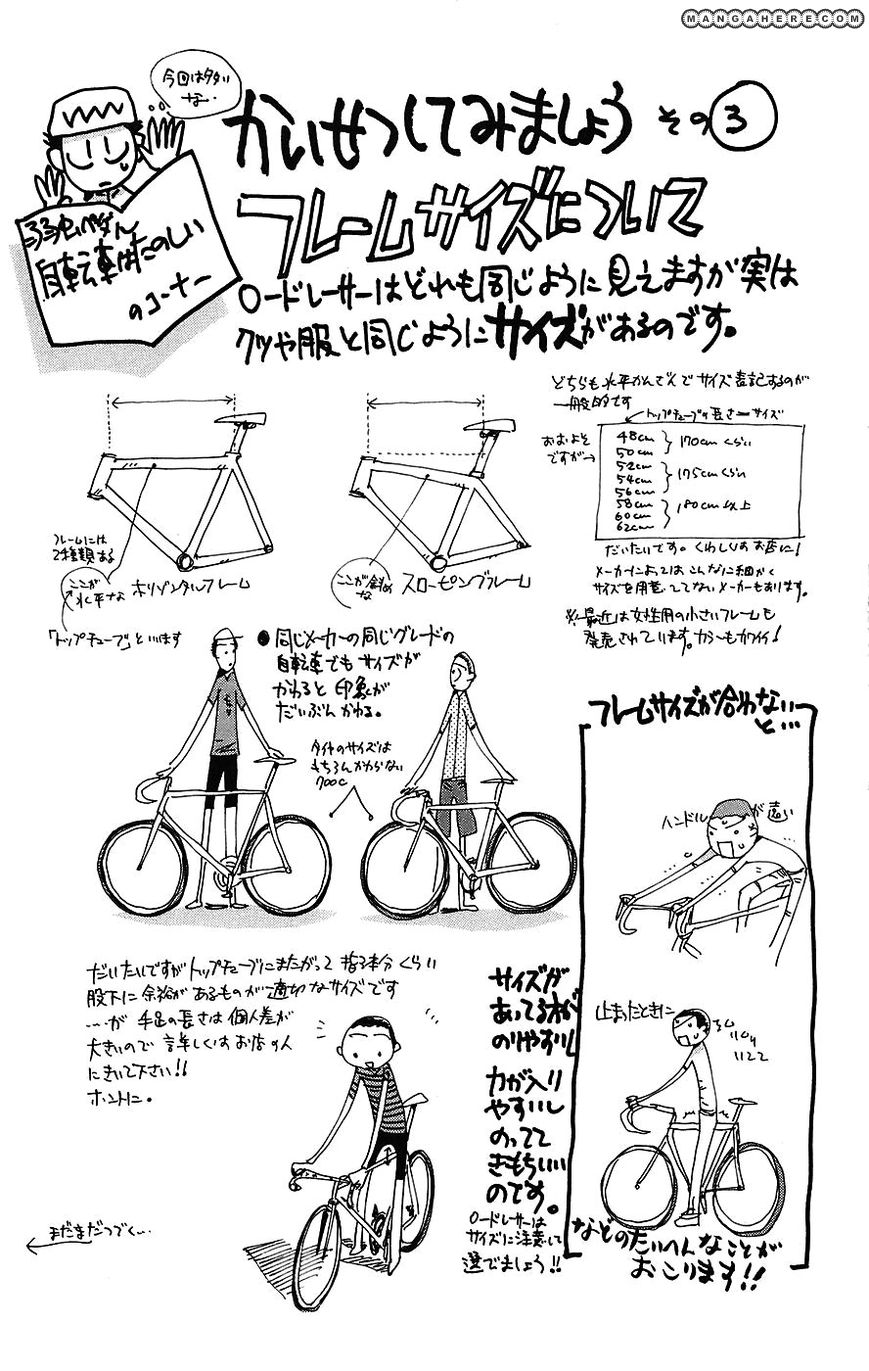 MANGAHERE.COM
今回は多いな…
かいせつしてみましょう その3
フレームサイズについて
弱虫ペダル
自転車はたのしい
のコーナー
ロードレーサーはどれも同じように見えますが実は
クツや服と同じようにサイズがあるのです。
どちらも水平かんざんでサイズ表記するのが
一般的です
トップチューブの長さ＝サイズ
おおよそ
ですが→
48cm
50cm
170cmくらい
52cm
54cm
56cm
175cmくらい
58cm
60cm
62cm
180cm以上
だいたいです。くわしくはお店に！
メーカーによってはこんなに細かく
サイズを用意してないメーカーもあります。
※最近は女性用の小さいフレームも
発売されています。カラーもカワイイ！
フレームには
2種類ある
ここが
水平な
ホリゾンタルフレーム
ここが斜め
な
スローピングフレーム
「トップチューブ」といいます
●同じメーカーの同じグレードの
自転車でもサイズが
かわると印象が
だいぶんかわる。
タイヤのサイズは
もちろんかわらない
700C
フレームサイズが合わない
と…
ハンドルが遠い
止まったときに
だいたいですがトップチューブにまたがって指3本分くらい
股下に余裕があるものが適切なサイズです
…が手足の長さは個人差が
大きいので詳しくはお店の人
にきいて下さい!!
ホントに。
サイズが
あってる方が
のりやすいし
力が入り
やすいし
のってて
きもちいい
のです。
ロードレーサーは
サイズに注意して
選びましょう!!
などのたいへんなことが
おこります!!
まだまだつづく…